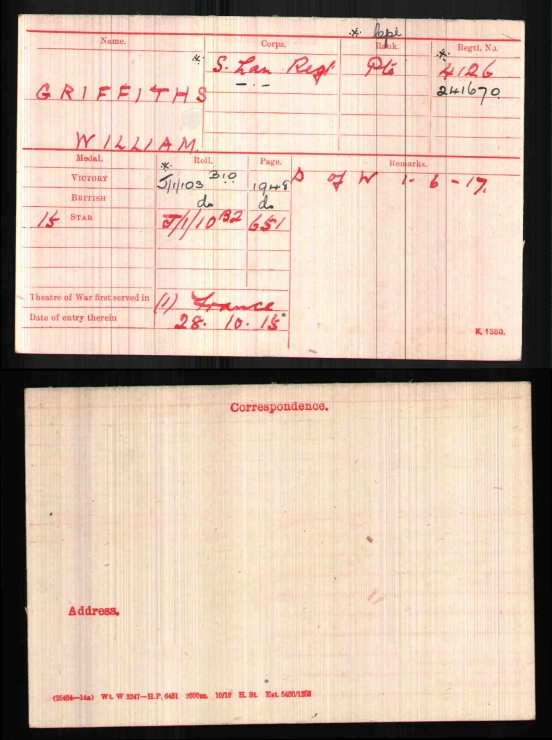 * Cpl
Name. Corps. Rank. Regtl. No.
* S. Lan Regt Pte * 4126
GRIFFITHS — . — 241670
WILLIAM.
Medal. Roll. Page. Remarks.
VICTORY * J/1/103 B10 1948 D of W 1-6-17.
BRITISH do do
15 STAR J/1/10 B2 651
Theatre of War first served in (1) France
Date of entry therein 28. 10. 15
K. 1380.
Correspondence.
Address.
Wt. W 5347—H.P. 6451 2000m. 10/19 H. St. Est.